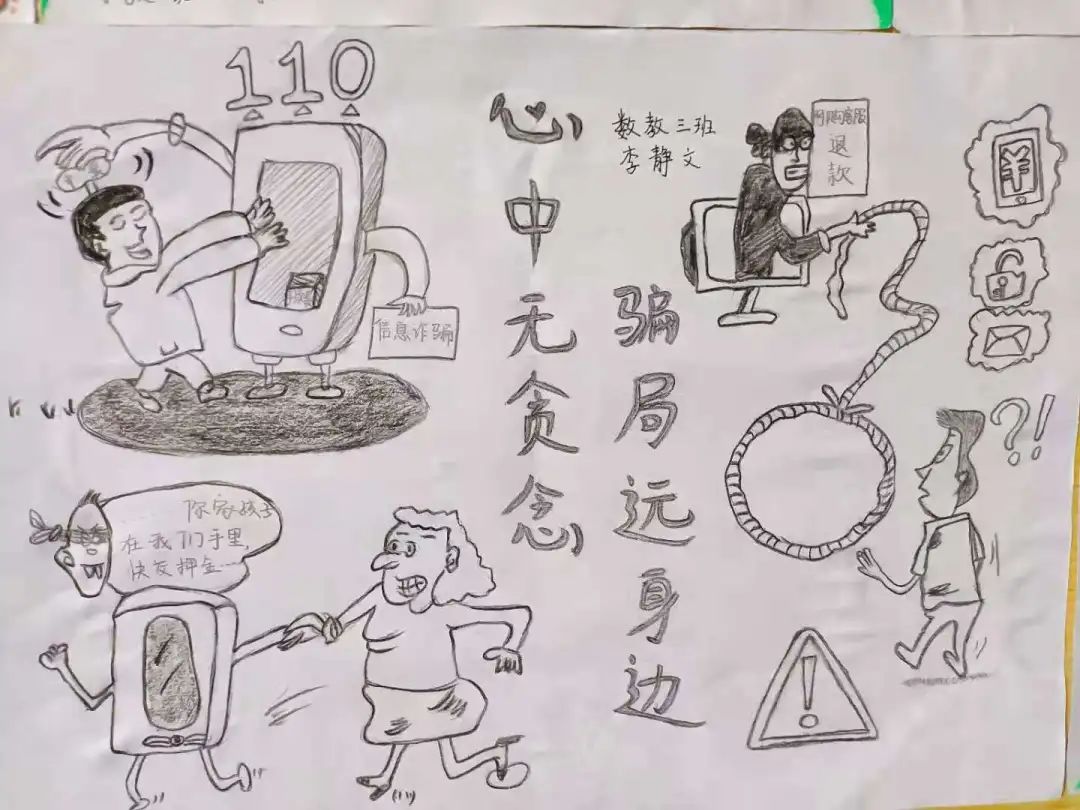 110
信息诈骗
心中无贪念
数教三班
李静文
骗局远身边
网购客服
退款
¥
?!
……你家孩子
在我们手里,
快发押金……
!